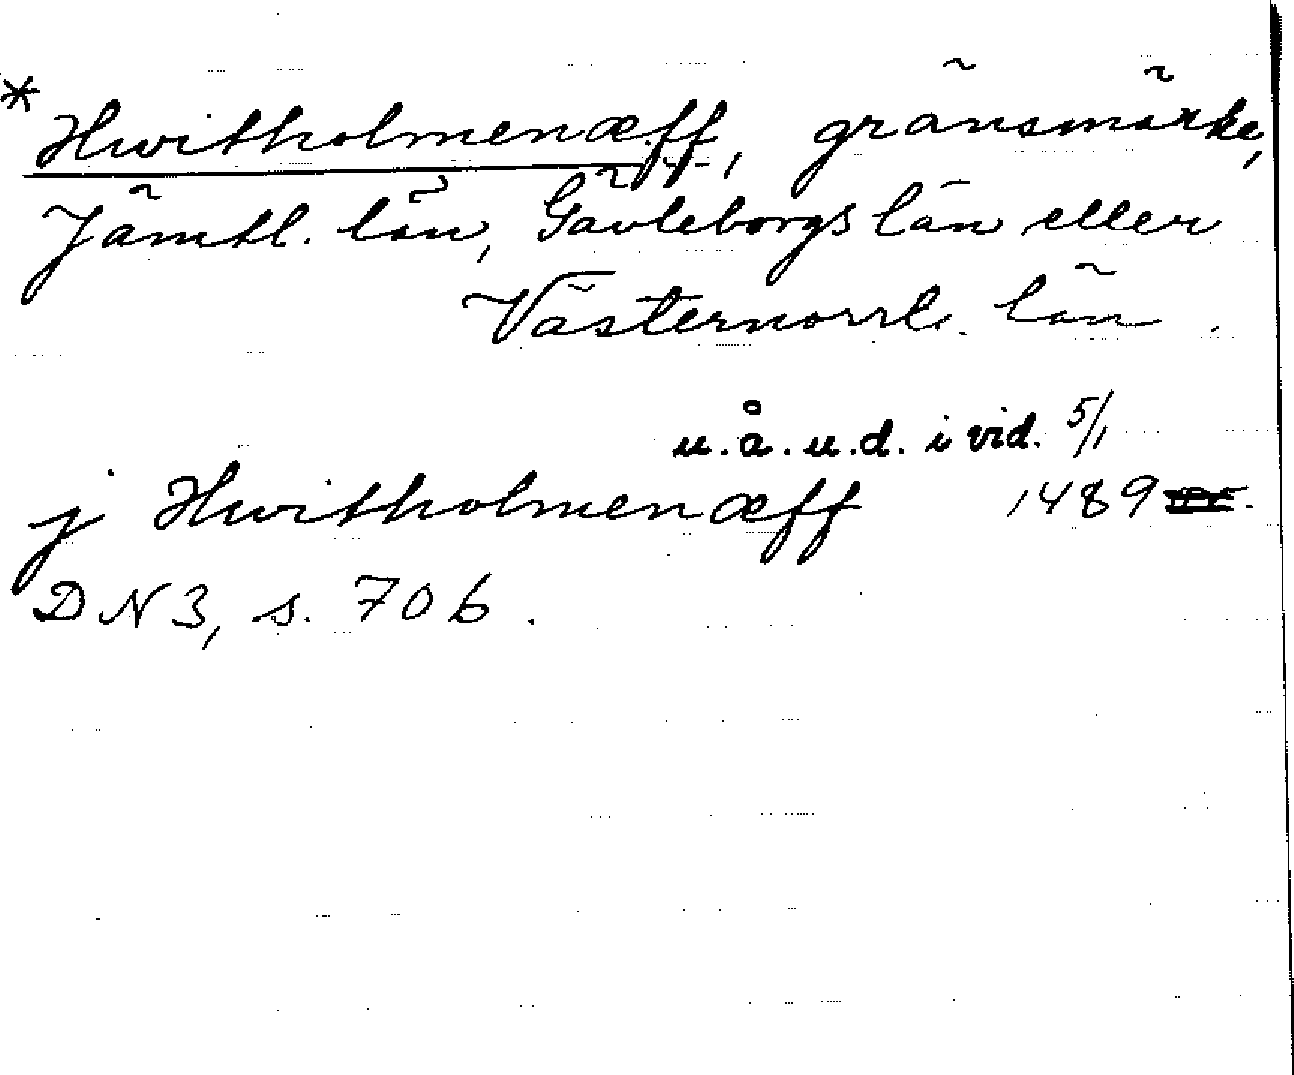 * Hwitholmenæff, gränsmärke,
Jämtl. län, Gävleborgs län eller
Västernorrl. län.
u.å.u.d. i vid. 5/1
j Hwitholmenæff 1489
DN 3, s. 706.